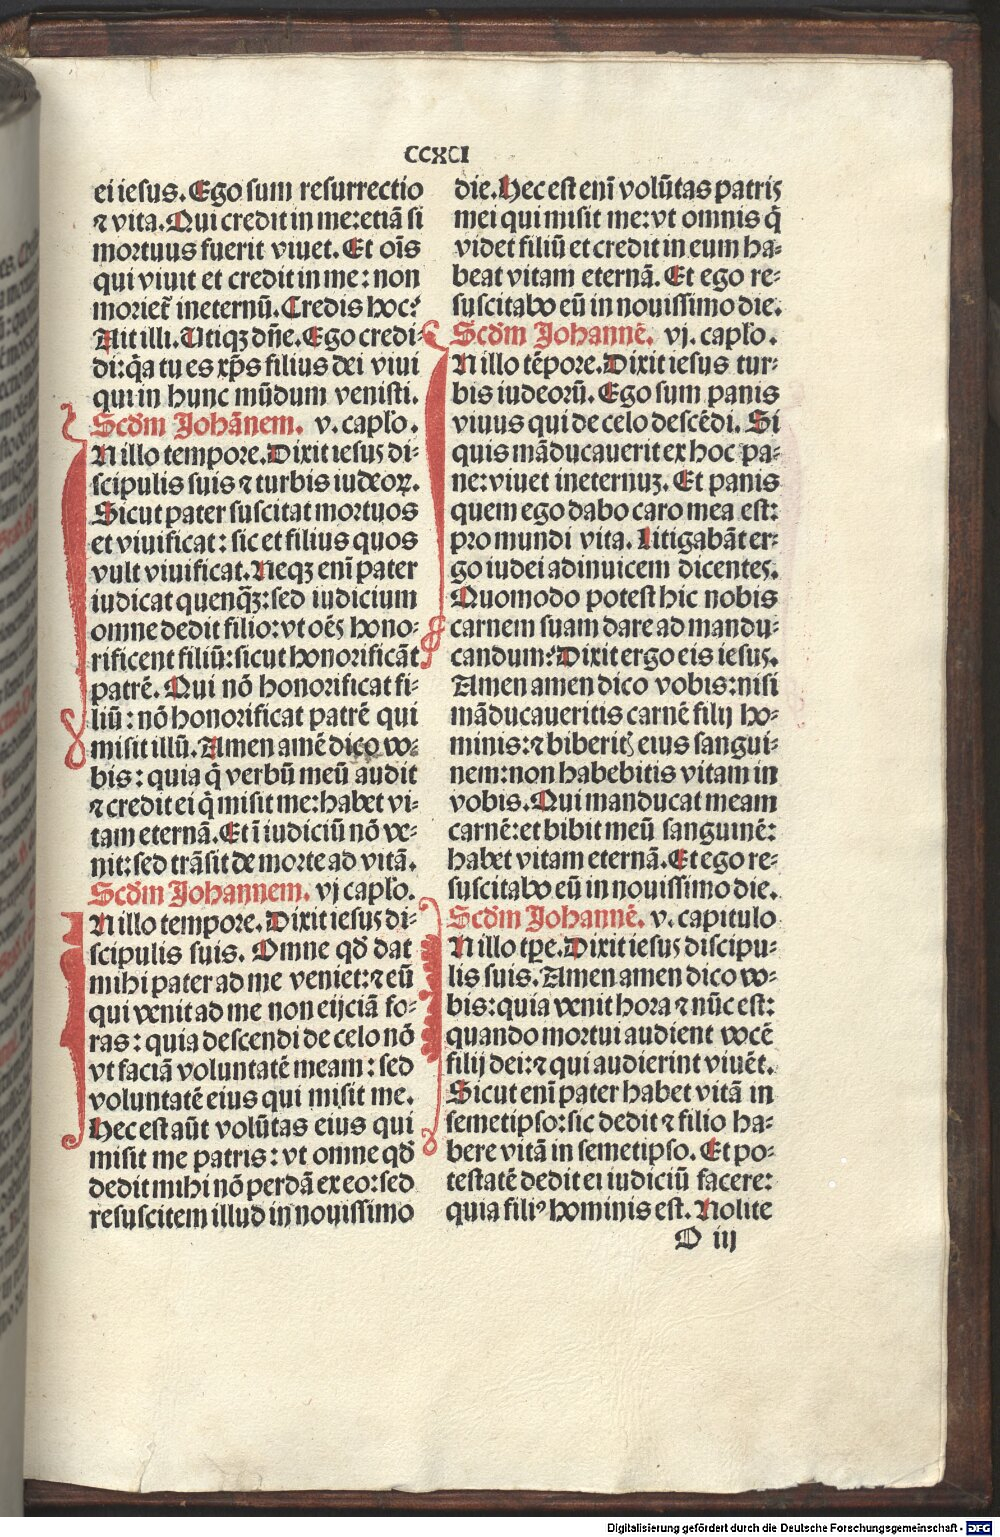 CCXCI
ei iesus. Ego sum resurrectio
⁊ vita. Qui credit in me: etiā si
mortuus fuerit viuet. Et oīs
qui viuit et credit in me: non
moriet᷑ ineternū. Credis hoc?
Ait illi. Utiqꝫ dn̄e. Ego credi-
di: q̄a tu es xp̄s filius dei viui
qui in hunc mūdum venisti.
Scd̄m Johānem. v. caplo.
In illo tempore. Dixit iesus di-
scipulis suis ⁊ turbis iudeoꝝ.
Sicut pater suscitat mortuos
et viuificat: sic et filius quos
vult viuificat. Neqꝫ enī pater
iudicat quenq̄ꝫ: sed iudicium
omne dedit filio: vt oēs hono-
rificent filiū: sicut honorificāt
patrē. Qui nō honorificat fi-
liū: nō honorificat patrē qui
misit illū. Amen amē dico vo-
bis: quia q̄ verbū meū audit
⁊ credit ei q̄ misit me: habet vi-
tam eternā. Et ī iudiciū nō ve-
nit: sed trāsit de morte ad vitā.
Scd̄m Johannem. vj caplo.
In illo tempore. Dixit iesus di-
scipulis suis. Omne qd̄ dat
mihi pater ad me veniet: ⁊ eū
qui venit ad me non eijciā fo-
ras: quia descendi de celo nō
vt faciā voluntatē meam: sed
voluntatē eius qui misit me.
Hec est aūt volūtas eius qui
misit me patris: vt omne qd̄
dedit mihi nō perdā ex eo: sed
resuscitem illud in nouissimo
die. Hec est enī volūtas patris
mei qui misit me: vt omnis q̄
videt filiū et credit in eum ha-
beat vitam eternā. Et ego re-
suscitabo eū in nouissimo die.
Scd̄m Johannē. vj. caplo.
In illo tēpore. Dixit iesus tur-
bis iudeorū. Ego sum panis
viuus qui de celo descēdi. Si
quis māducauerit ex hoc pa-
ne: viuet ineternuꝫ. Et panis
quem ego dabo caro mea est:
pro mundi vita. Litigabāt er-
go iudei adinuicem dicentes.
Quomodo potest hic nobis
carnem suam dare ad mandu-
candum? Dixit ergo eis iesus.
Amen amen dico vobis: nisi
māducaueritis carnē filij ho-
minis: ⁊ biberitꝭ eius sangui-
nem: non habebitis vitam in
vobis. Qui manducat meam
carnē: et bibit meū sanguinē:
habet vitam eternā. Et ego re-
suscitabo eū in nouissimo die.
Scd̄m Johannē. v. capitulo
In illo tp̄e. Dixit iesus discipu-
lis suis. Amen amen dico vo-
bis: quia venit hora ⁊ nūc est:
quando mortui audient vocē
filij dei: ⁊ qui audierint viuēt.
Sicut enī pater habet vitā in
semetipso: sic dedit ⁊ filio ha-
bere vitā in semetipso. Et po-
testatē dedit ei iudiciū facere:
quia filiꝰ hominis est. Nolite
D iij
Digitalisierung gefördert durch die Deutsche Forschungsgemeinschaft - DFG